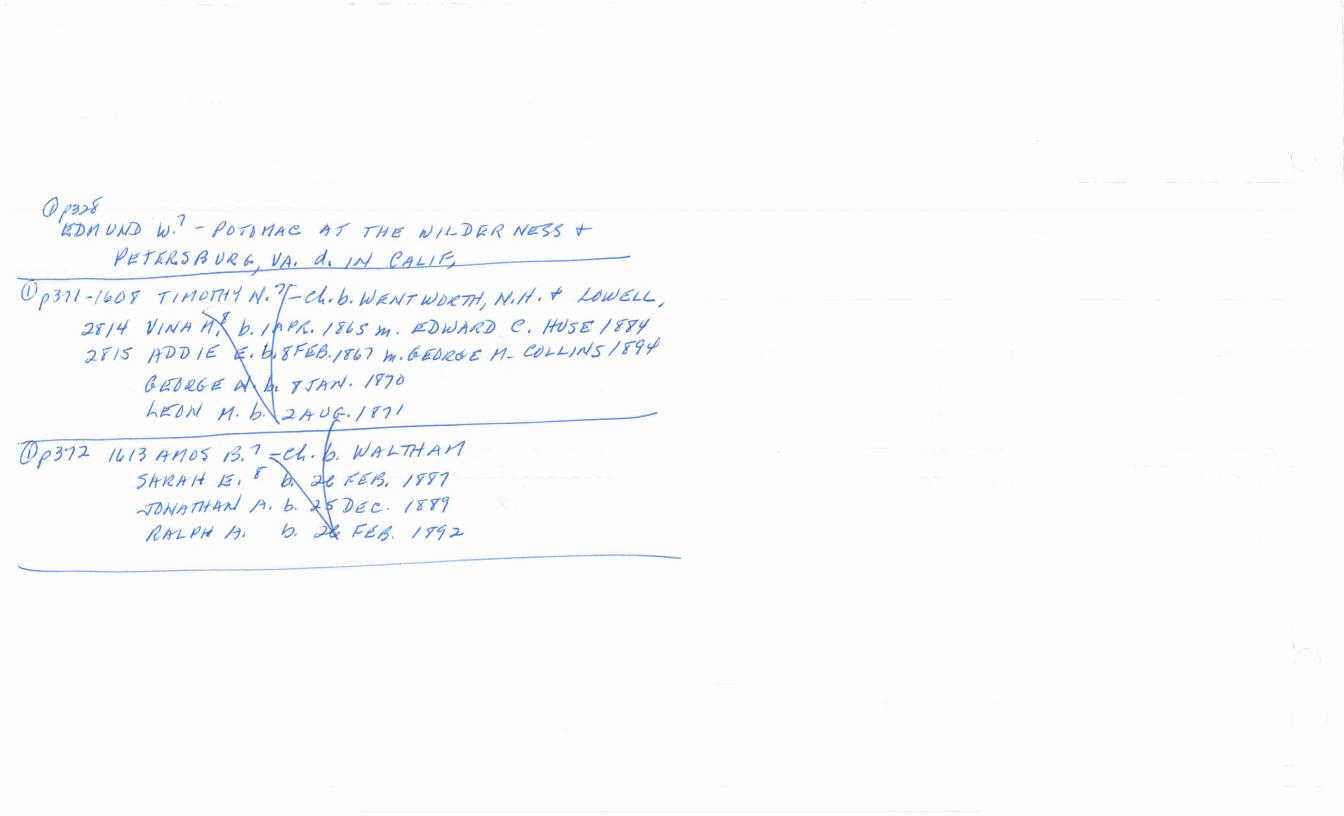 ① p328
EDMUND W.⁷ - POTOMAC AT THE WILDERNESS +
PETERSBURG, VA. d. IN CALIF.
① p371-1608 TIMOTHY N.⁷ - ch. b. WENTWORTH, N.H. + LOWELL,
2814 VINA M.⁸ b. 1 APR. 1865 m. EDWARD C. HUSE 1884
2815 ADDIE E. b. 8 FEB. 1867 m. GEORGE M. COLLINS 1894
GEORGE W. b. 8 JAN. 1870
LEON M. b. 2 AUG. 1871
① p372 1613 AMOS B.⁷ - ch. b. WALTHAM
SARAH E.⁸ b. 26 FEB. 1887
JONATHAN A. b. 25 DEC. 1889
RALPH A. b. 26 FEB. 1892